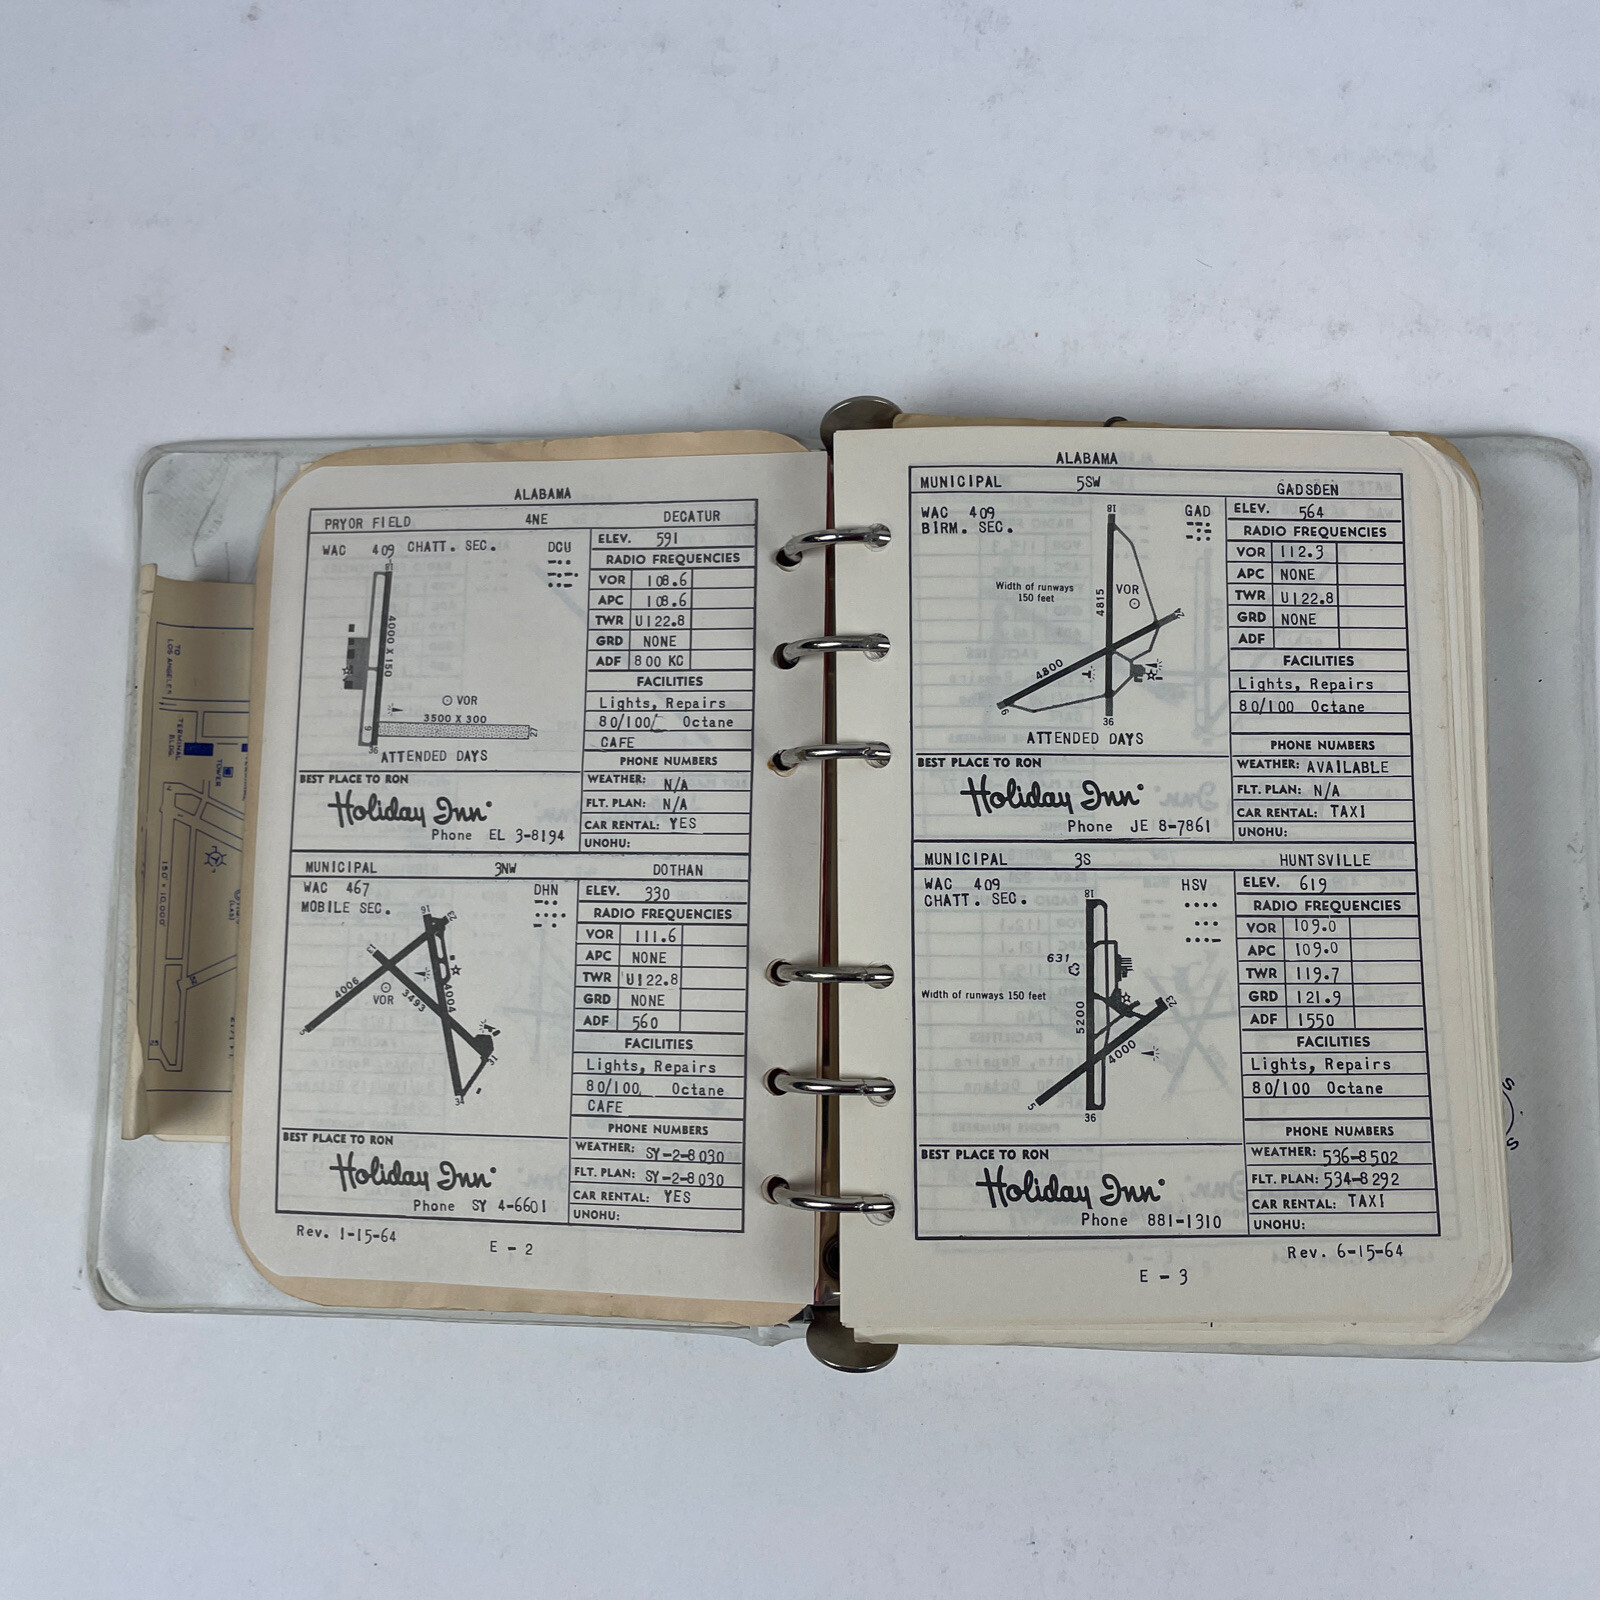 TO
LOS ANGELES
TERMINAL
BLDG.
TOWER
150' x 10,000'
(LAS)
ALABAMA
PRYOR FIELD 4NE DECATUR
WAC 409 CHATT. SEC. DCU
4000 X 150
VOR
3500 X 300
9
27
36
ATTENDED DAYS
ELEV. 591
RADIO FREQUENCIES
VOR 108.6
APC 108.6
TWR U122.8
GRD NONE
ADF 800 KC
FACILITIES
Lights, Repairs
80/100/ Octane
CAFE
PHONE NUMBERS
WEATHER: N/A
FLT. PLAN: N/A
CAR RENTAL: YES
UNOHU:
BEST PLACE TO RON
Holiday Inn
Phone EL 3-8194
MUNICIPAL 3NW DOTHAN
WAC 467 DHN
MOBILE SEC.
16
23
13
4006
VOR
3493
4004
5
31
34
ELEV. 330
RADIO FREQUENCIES
VOR 111.6
APC NONE
TWR U122.8
GRD NONE
ADF 560
FACILITIES
Lights, Repairs
80/100 Octane
CAFE
PHONE NUMBERS
WEATHER: SY-2-8030
FLT. PLAN: SY-2-8030
CAR RENTAL: YES
UNOHU:
BEST PLACE TO RON
Holiday Inn
Phone SY 4-6601
Rev. 1-15-64
E - 2
ALABAMA
MUNICIPAL 5SW GADSDEN
WAC 409 GAD
BIRM. SEC.
18
Width of runways
150 feet
4815
VOR
24
4800
6
36
ATTENDED DAYS
ELEV. 564
RADIO FREQUENCIES
VOR 112.3
APC NONE
TWR U122.8
GRD NONE
ADF
FACILITIES
Lights, Repairs
80/100 Octane
PHONE NUMBERS
WEATHER: AVAILABLE
FLT. PLAN: N/A
CAR RENTAL: TAXI
UNOHU:
BEST PLACE TO RON
Holiday Inn
Phone JE 8-7861
MUNICIPAL 3S HUNTSVILLE
WAC 409 HSV
CHATT. SEC.
18
631
Width of runways 150 feet
5200
23
4000
5
36
ELEV. 619
RADIO FREQUENCIES
VOR 109.0
APC 109.0
TWR 119.7
GRD 121.9
ADF 1550
FACILITIES
Lights, Repairs
80/100 Octane
PHONE NUMBERS
WEATHER: 536-8502
FLT. PLAN: 534-8292
CAR RENTAL: TAXI
UNOHU:
BEST PLACE TO RON
Holiday Inn
Phone 881-1310
Rev. 6-15-64
E - 3